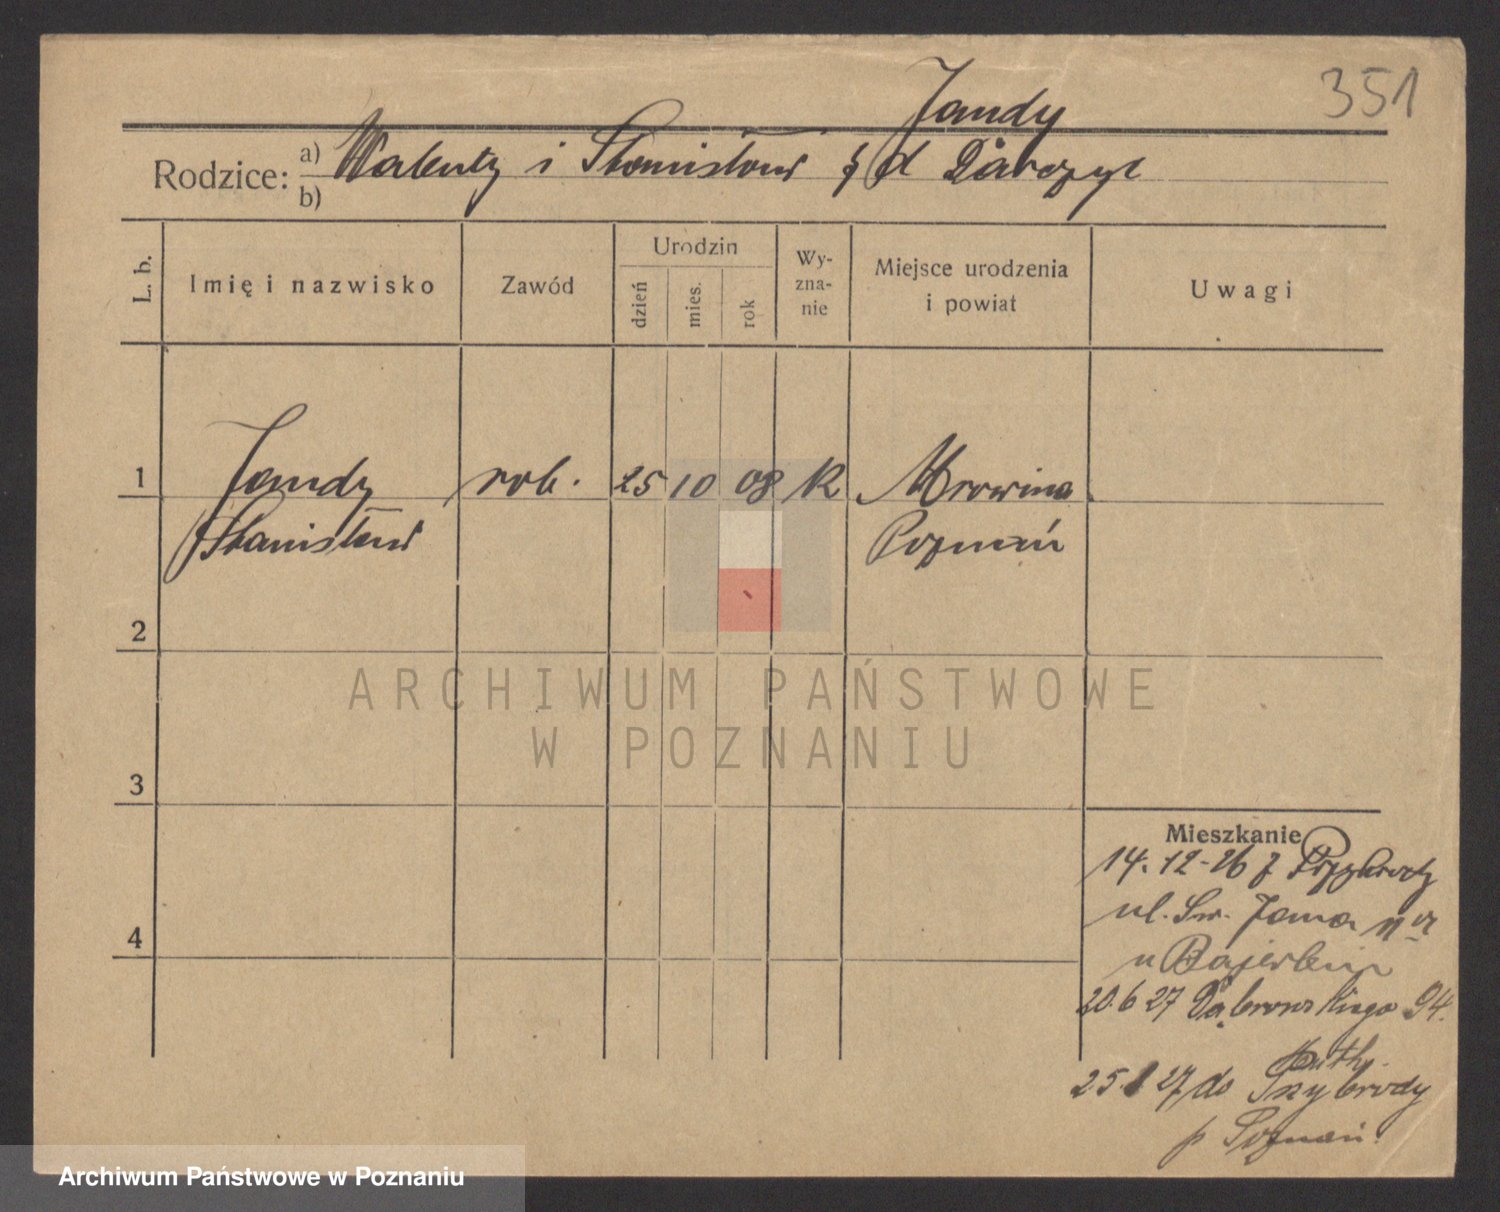 351
Jandy
Rodzice: a) Walenty i Stanisława z d
b)
L. b.
Imię i nazwisko
Zawód
Urodzin
dzień
mies.
rok
Wy-
zna-
nie
Miejsce urodzenia
i powiat
Uwagi
1
Jandy
rob.
25
10
08
K
Mrowino
Stanisław
Poznań
2
ARCHIWUM PAŃSTWOWE
W POZNANIU
3
Mieszkanie
14.12-26 z Przybrody
ul. Św. Jana
u
20.6 27 Dąbrowskiego 94.
27 do Przybrody
p Poznań.
4
Archiwum Państwowe w Poznaniu